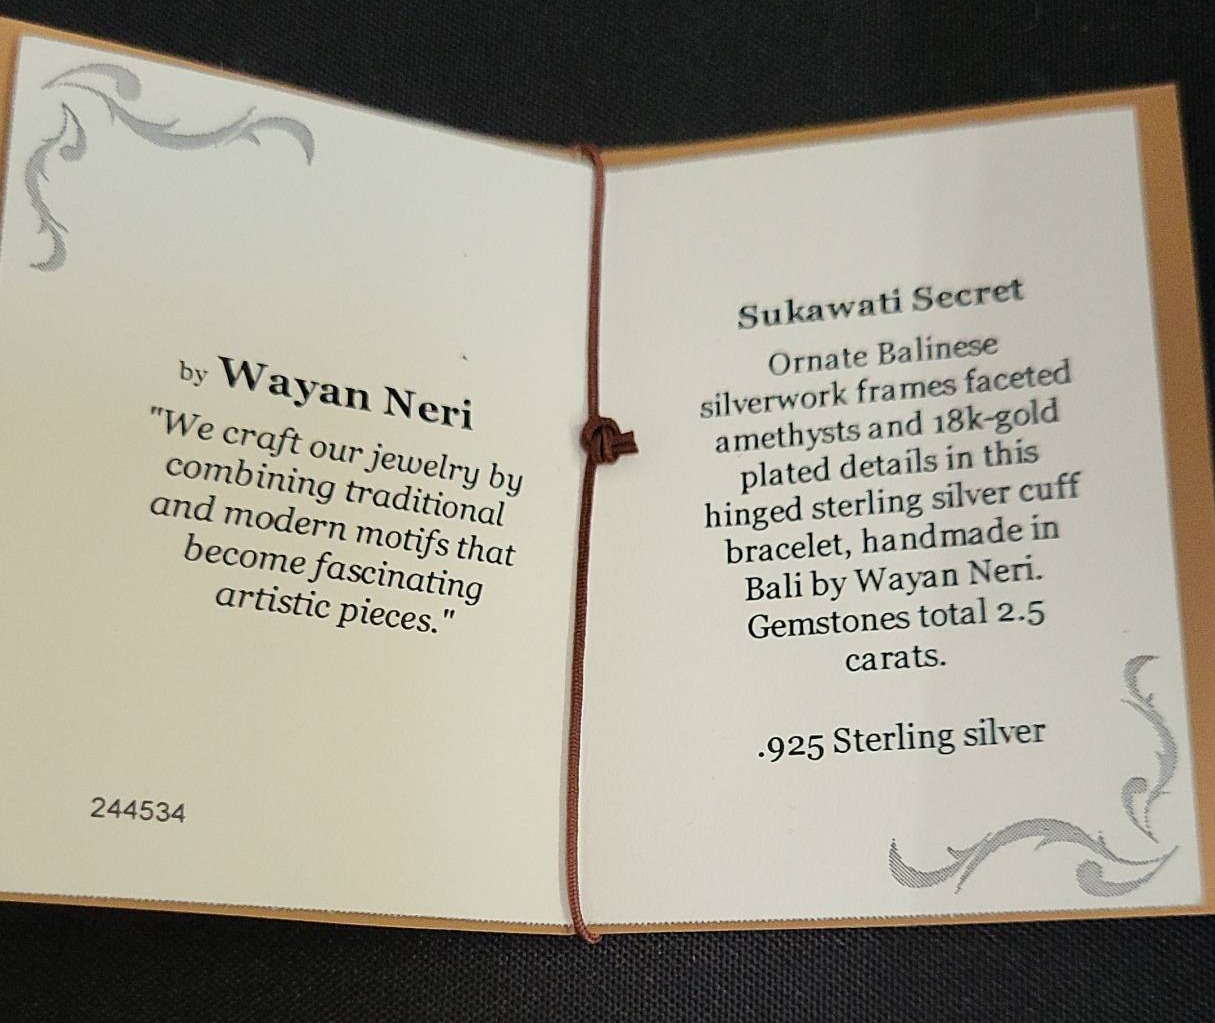 by Wayan Neri
"We craft our jewelry by
combining traditional
and modern motifs that
become fascinating
artistic pieces."
244534
Sukawati Secret
Ornate Balinese
silverwork frames faceted
amethysts and 18k-gold
plated details in this
hinged sterling silver cuff
bracelet, handmade in
Bali by Wayan Neri.
Gemstones total 2.5
carats.
.925 Sterling silver